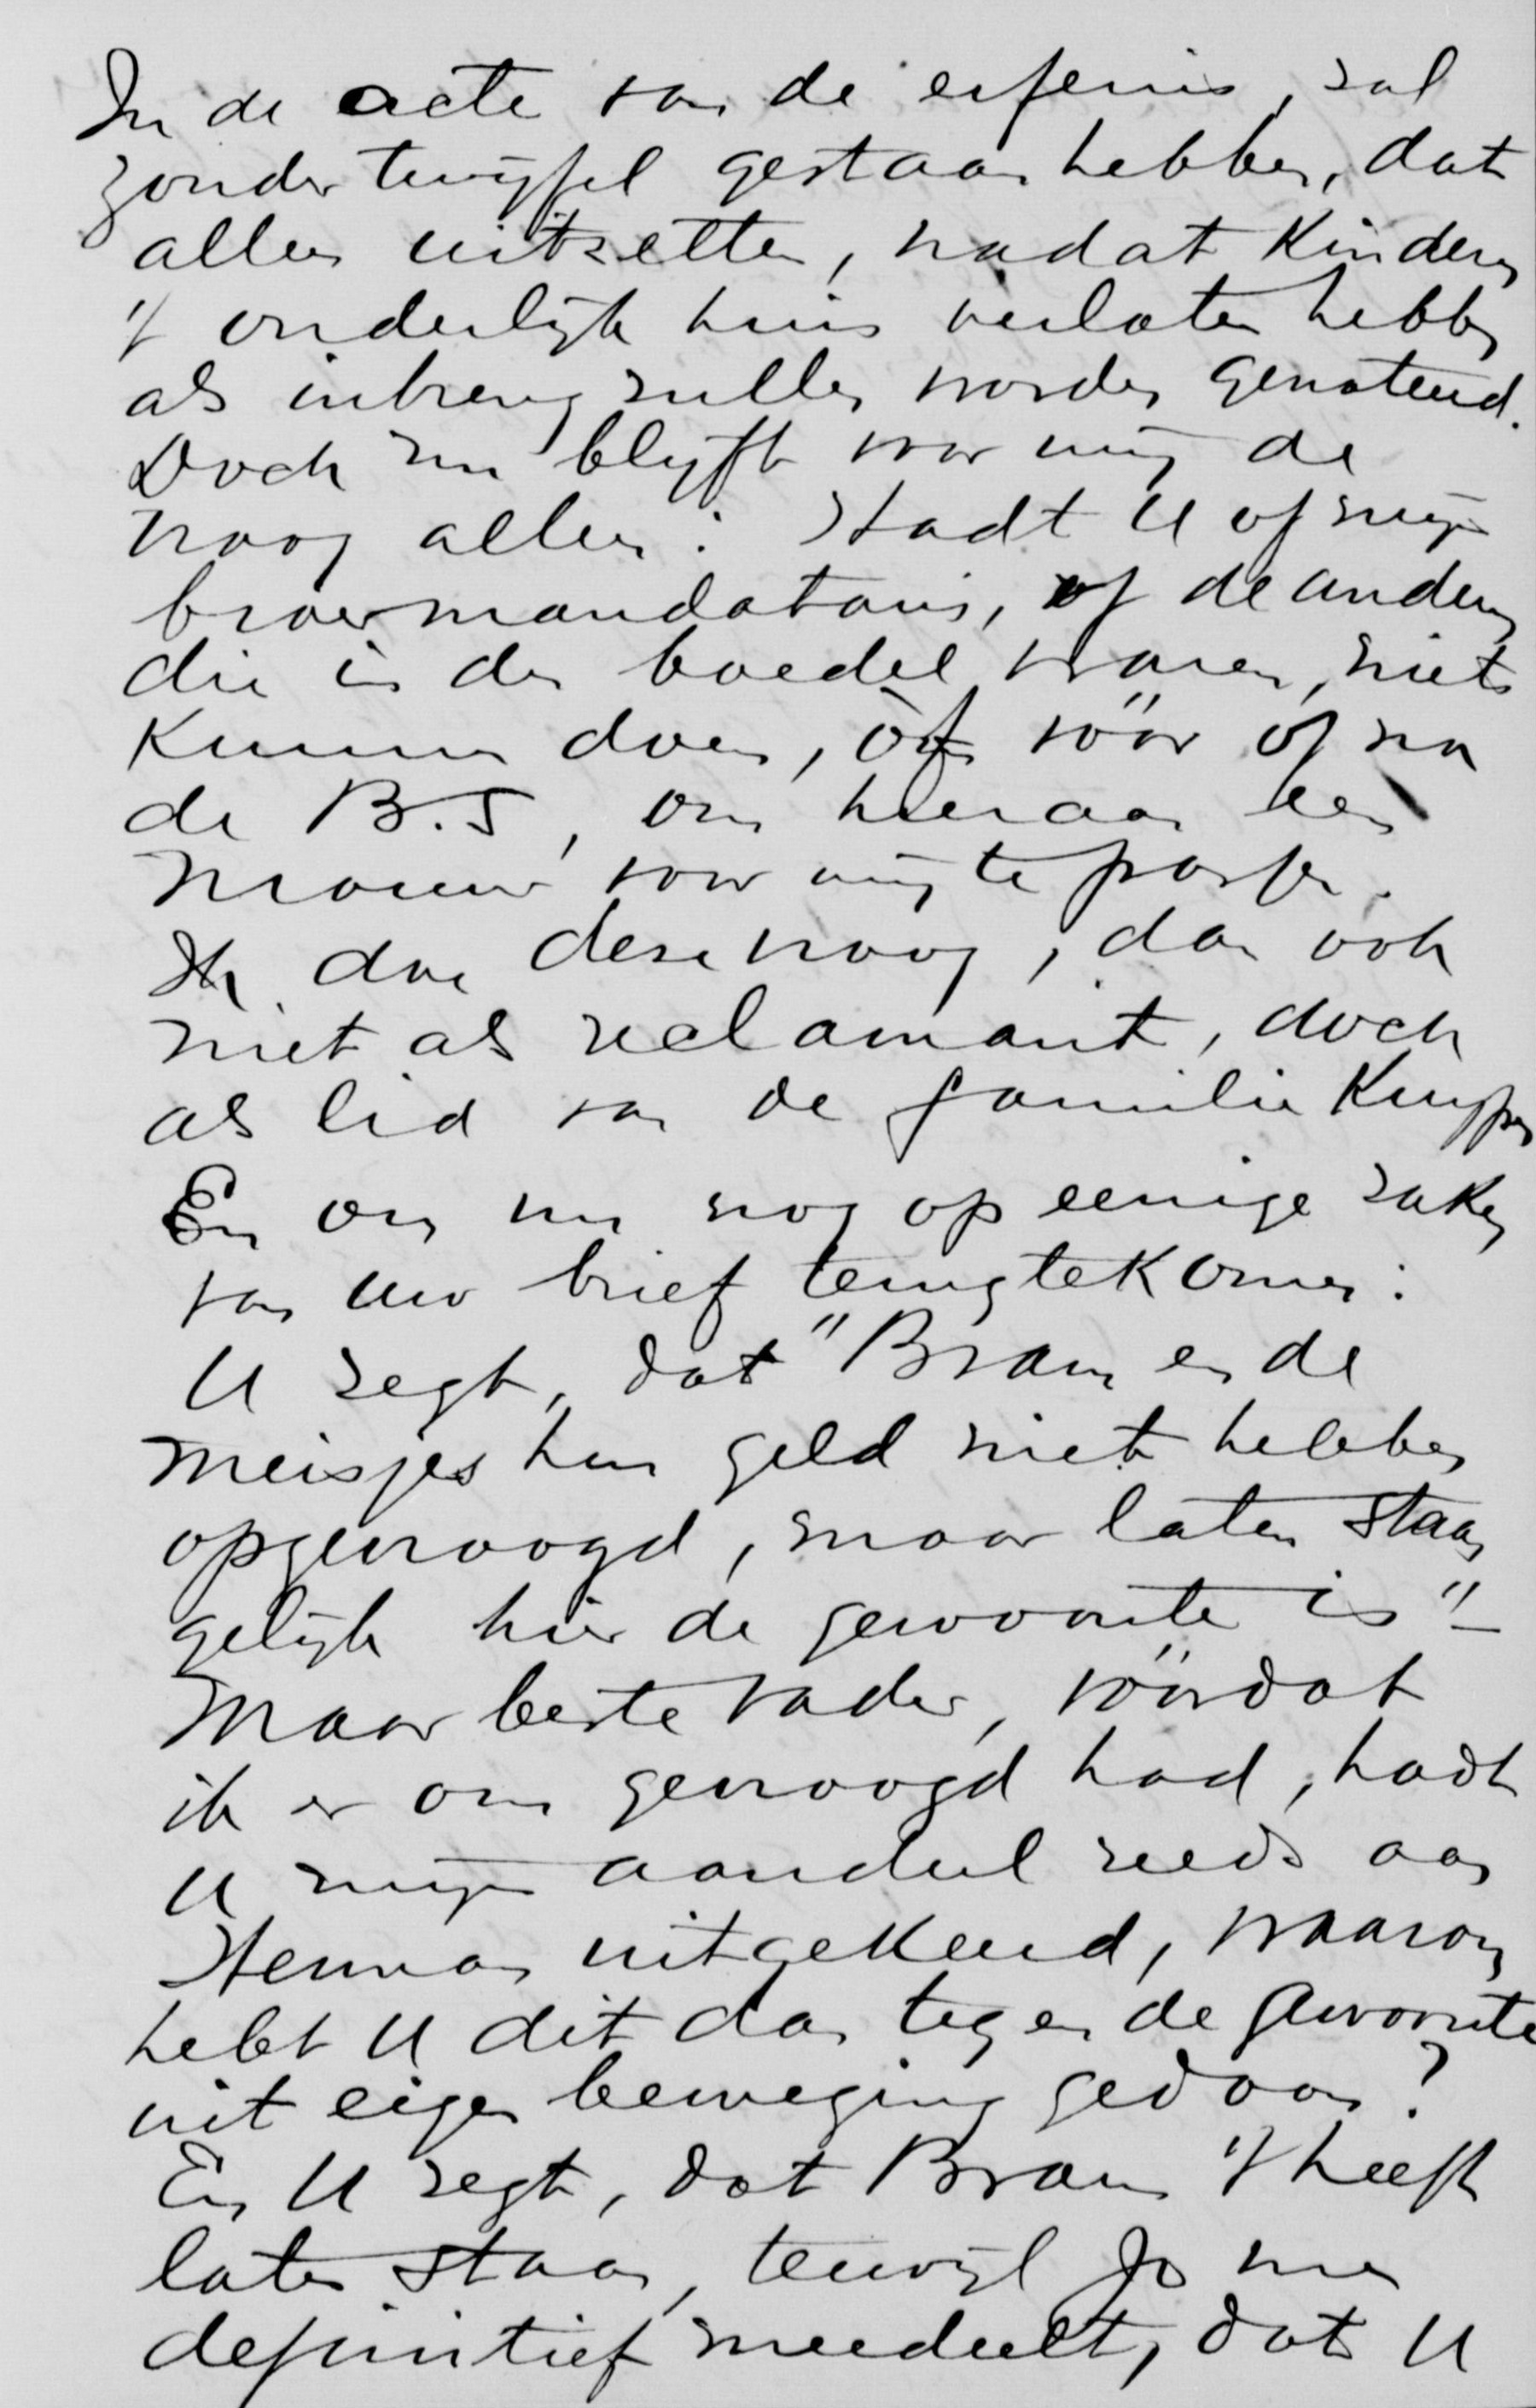 In de acte van de erfenis, zal
zonder twijfel gestaan hebben, dat
alleen uitzetten, nadat Kinderen
't ouderlijk huis verlaten hebben
als inbreng zullen worden genoteerd.
Doch nu blijft voor mij de
vraag alleen: Hadt U of mijn
broer mandataris, of de anderen
die in den boedel waren, niets
Kunnen doen, òf vóór of na
de B.S, om hieraan een
mouw voor mij te passen.
Ik doe deze vraag, dan ook
niet als reclamant, doch
als lid van de familie Kuyper
En om nu nog op eenige zaken
van uw brief terugtekomen:
U zegt, dat "Bram en de
meisjes hun geld niet hebben
opgevraagd, maar laten staan
gelijk hier de gewoonte is" _
Maar beste Vader, vóórdat
ik er om gevraagd had, hadt
U mijn aandeel reeds aan
Herman uitgekeerd, waarom
hebt U dit dan tegen de gewoonte
uit eigen beweging gedaan?
En U zegt, dat Bram 't heeft
laten staan, terwijl Jo me
definitief meedeelt, dat U